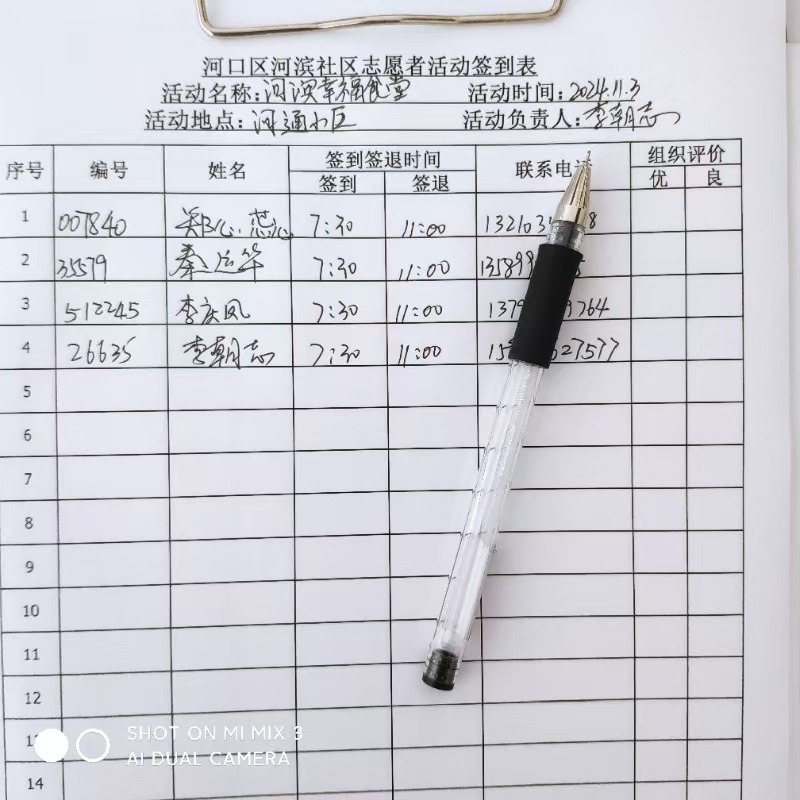 河口区河滨社区志愿者活动签到表
活动名称:河滨幸福食堂 活动时间:2024.11.3
活动地点:河通小区 活动负责人:李朝志
序号 编号 姓名 签到签退时间 联系电话 组织评价
签到 签退 优 良
1 007840 郑心蕊 7:30 11:00
2 35579 秦 华 7:30 11:00
3 512245 李庆凤 7:30 11:00
4 26635 李朝志 7:30 11:00
5
6
7
8
9
10
11
12
13
14
SHOT ON MI MIX 3
AI DUAL CAMERA